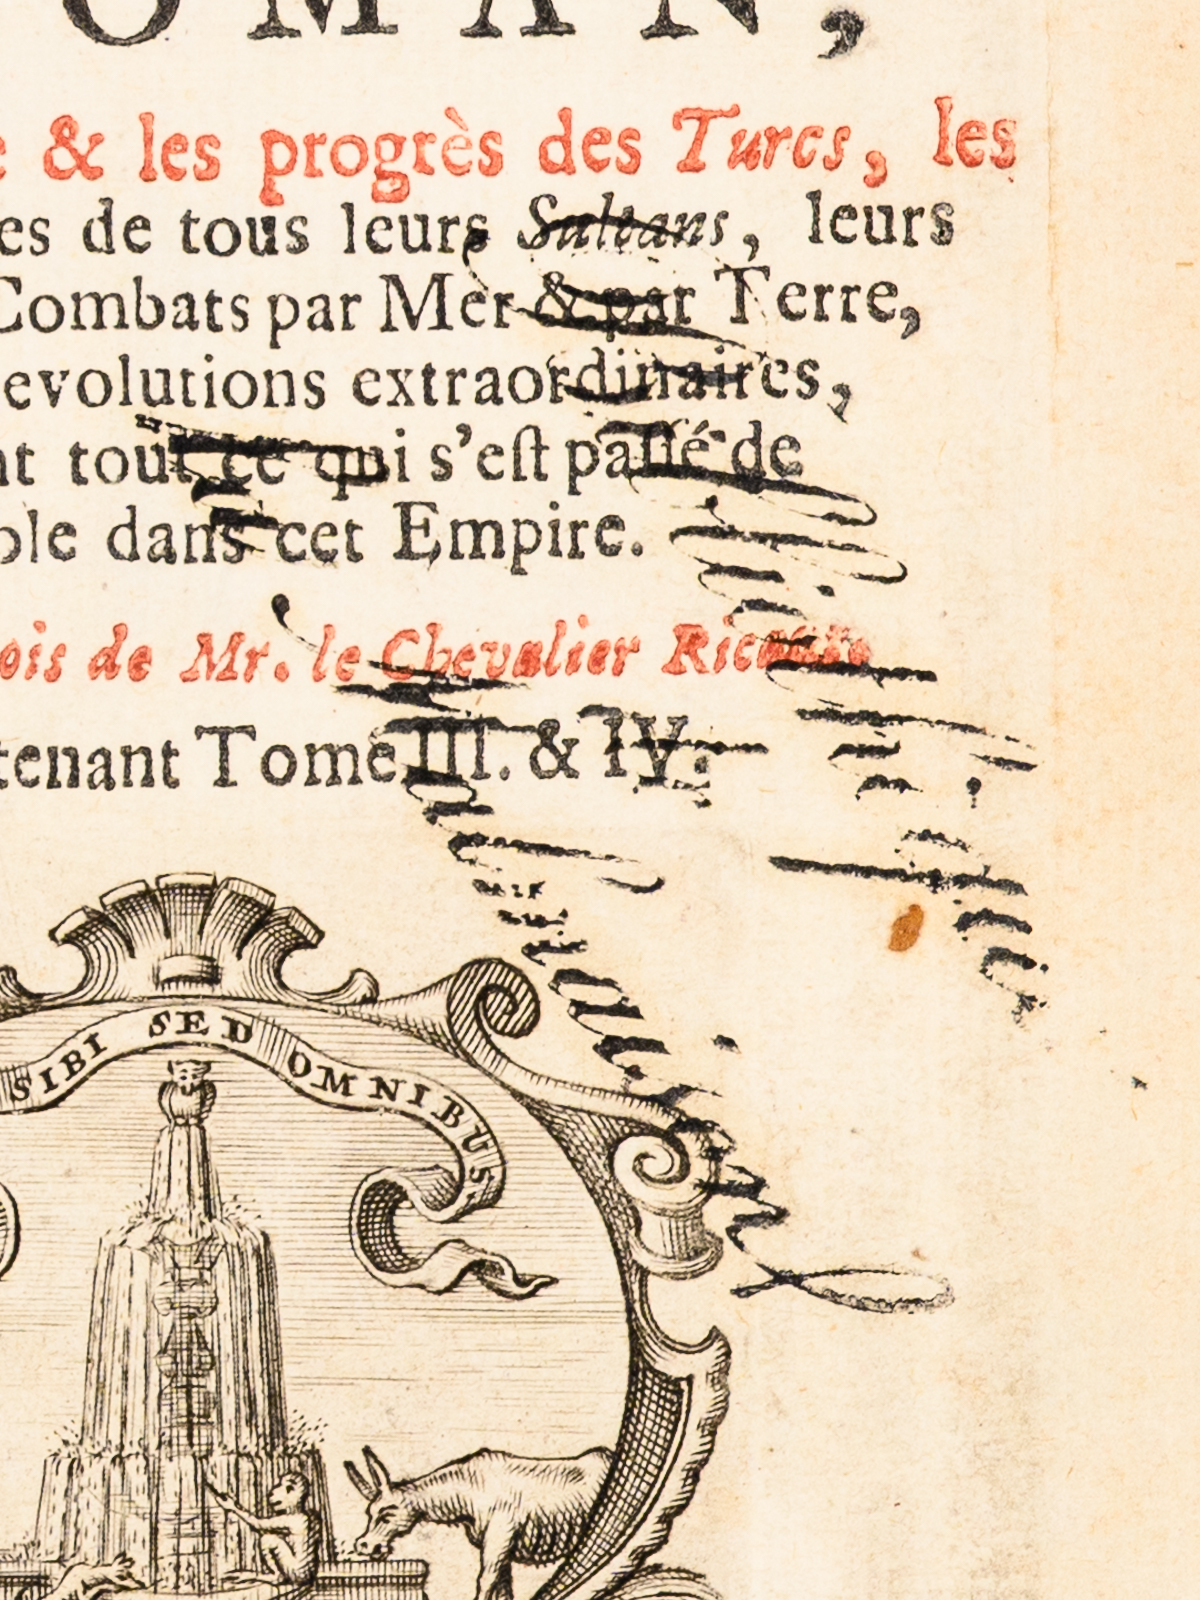 OMAN,
& les progrès des Turcs, les
es de tous leurs Sultans, leurs
Combats par Mer & par Terre,
evolutions extraordinaires,
nt tout ce qui s'est passé de
ble dans cet Empire.
ois de Mr. le Chevalier Ricaut.
tenant Tome III. & IV.
SIBI SED OMNIBUS.